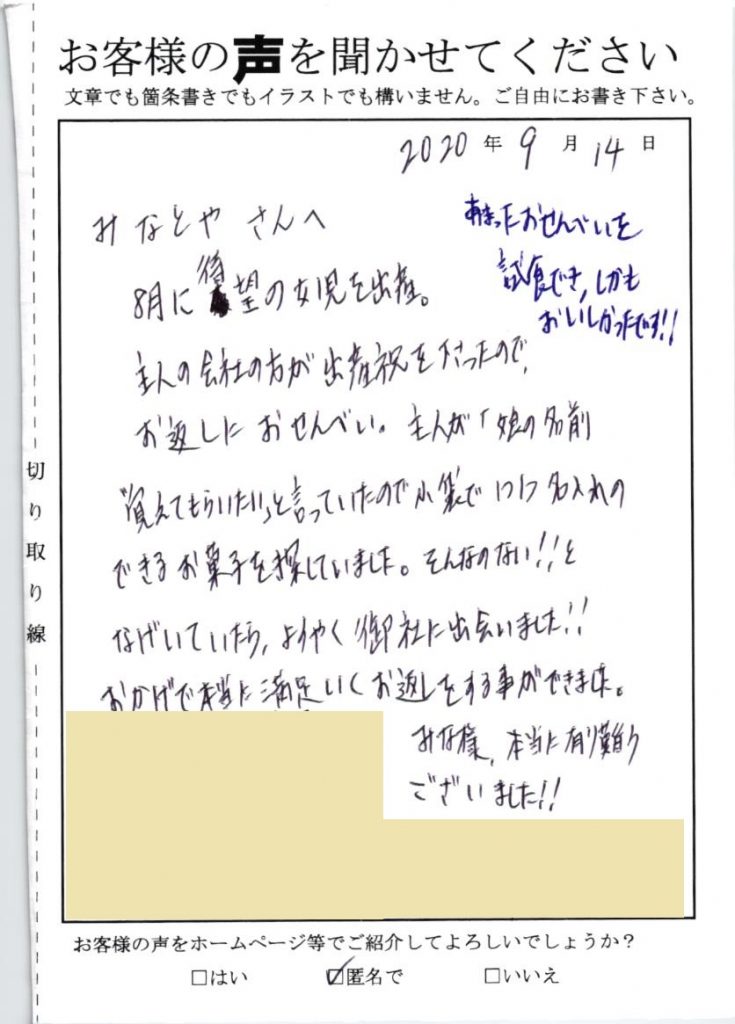 お客様の声を聞かせてください
文章でも箇条書きでもイラストでも構いません。ご自由にお書き下さい。
2020年9月14日
みなとや さんへ
8月に待望の女児を出産。
主人の会社の方が出産祝を下さったので、
お返しに おせんべい。主人が「娘の名前
覚えてもらいたい」と言っていたので小袋で1つ1つ名入れの
できるお菓子を探していました。そんなのない!!と
なげいていたら、ようやく御社に出会いました!!
おかげで本当に満足いくお返しをする事ができました。
みな様、本当に有り難う
ございました!!
あまったおせんべいを
試食でき、しかも
おいしかったです!!
切り取り線
お客様の声をホームページ等でご紹介してよろしいでしょうか?
□はい ☑匿名で □いいえ